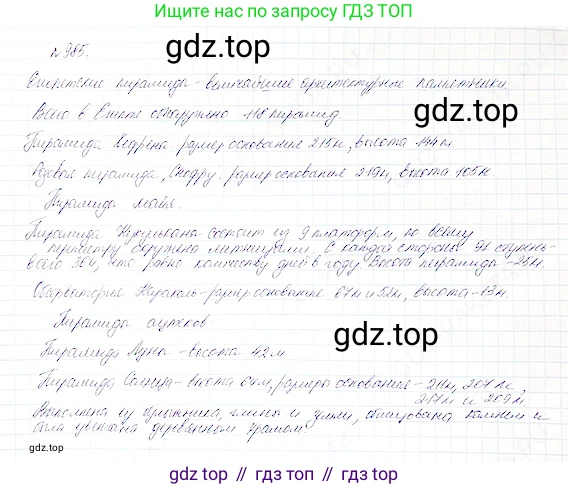 Ищите нас по запросу ГДЗ ТОП
№985.
gdz.top
Египетские пирамиды - величайшие архитектурные памятники.
Всего в Египте обнаружено 118 пирамид.
gdz.top
Пирамида Хефрена размер основания 215м, высота 144м
Розовая пирамида, Снофру: размер основания 219м, высота 105м.
Пирамиды майя.
Пирамида Кукулькана состоит из 9 платформ, по всему
периметру окружена лестницами. С каждой стороны 91 ступень-
всего 364, что равно количеству дней в году. Высота пирамиды -25м.
Обсерватория Караколь-размер основания 67м и 52м, высота-13м.
Пирамиды ацтеков
gdz.top
Пирамида Луны -высота 42м
gdz.top
Пирамида Солнца- высота 64м, размеры основания -211м, 207м,
217м и 209м.
Выполнена из кирпичника, глины и земли, облицована камнем и
была увенчана деревянным храмом
gdz.top
gdz.top // гдз.топ // gdz.top // гдз.топ